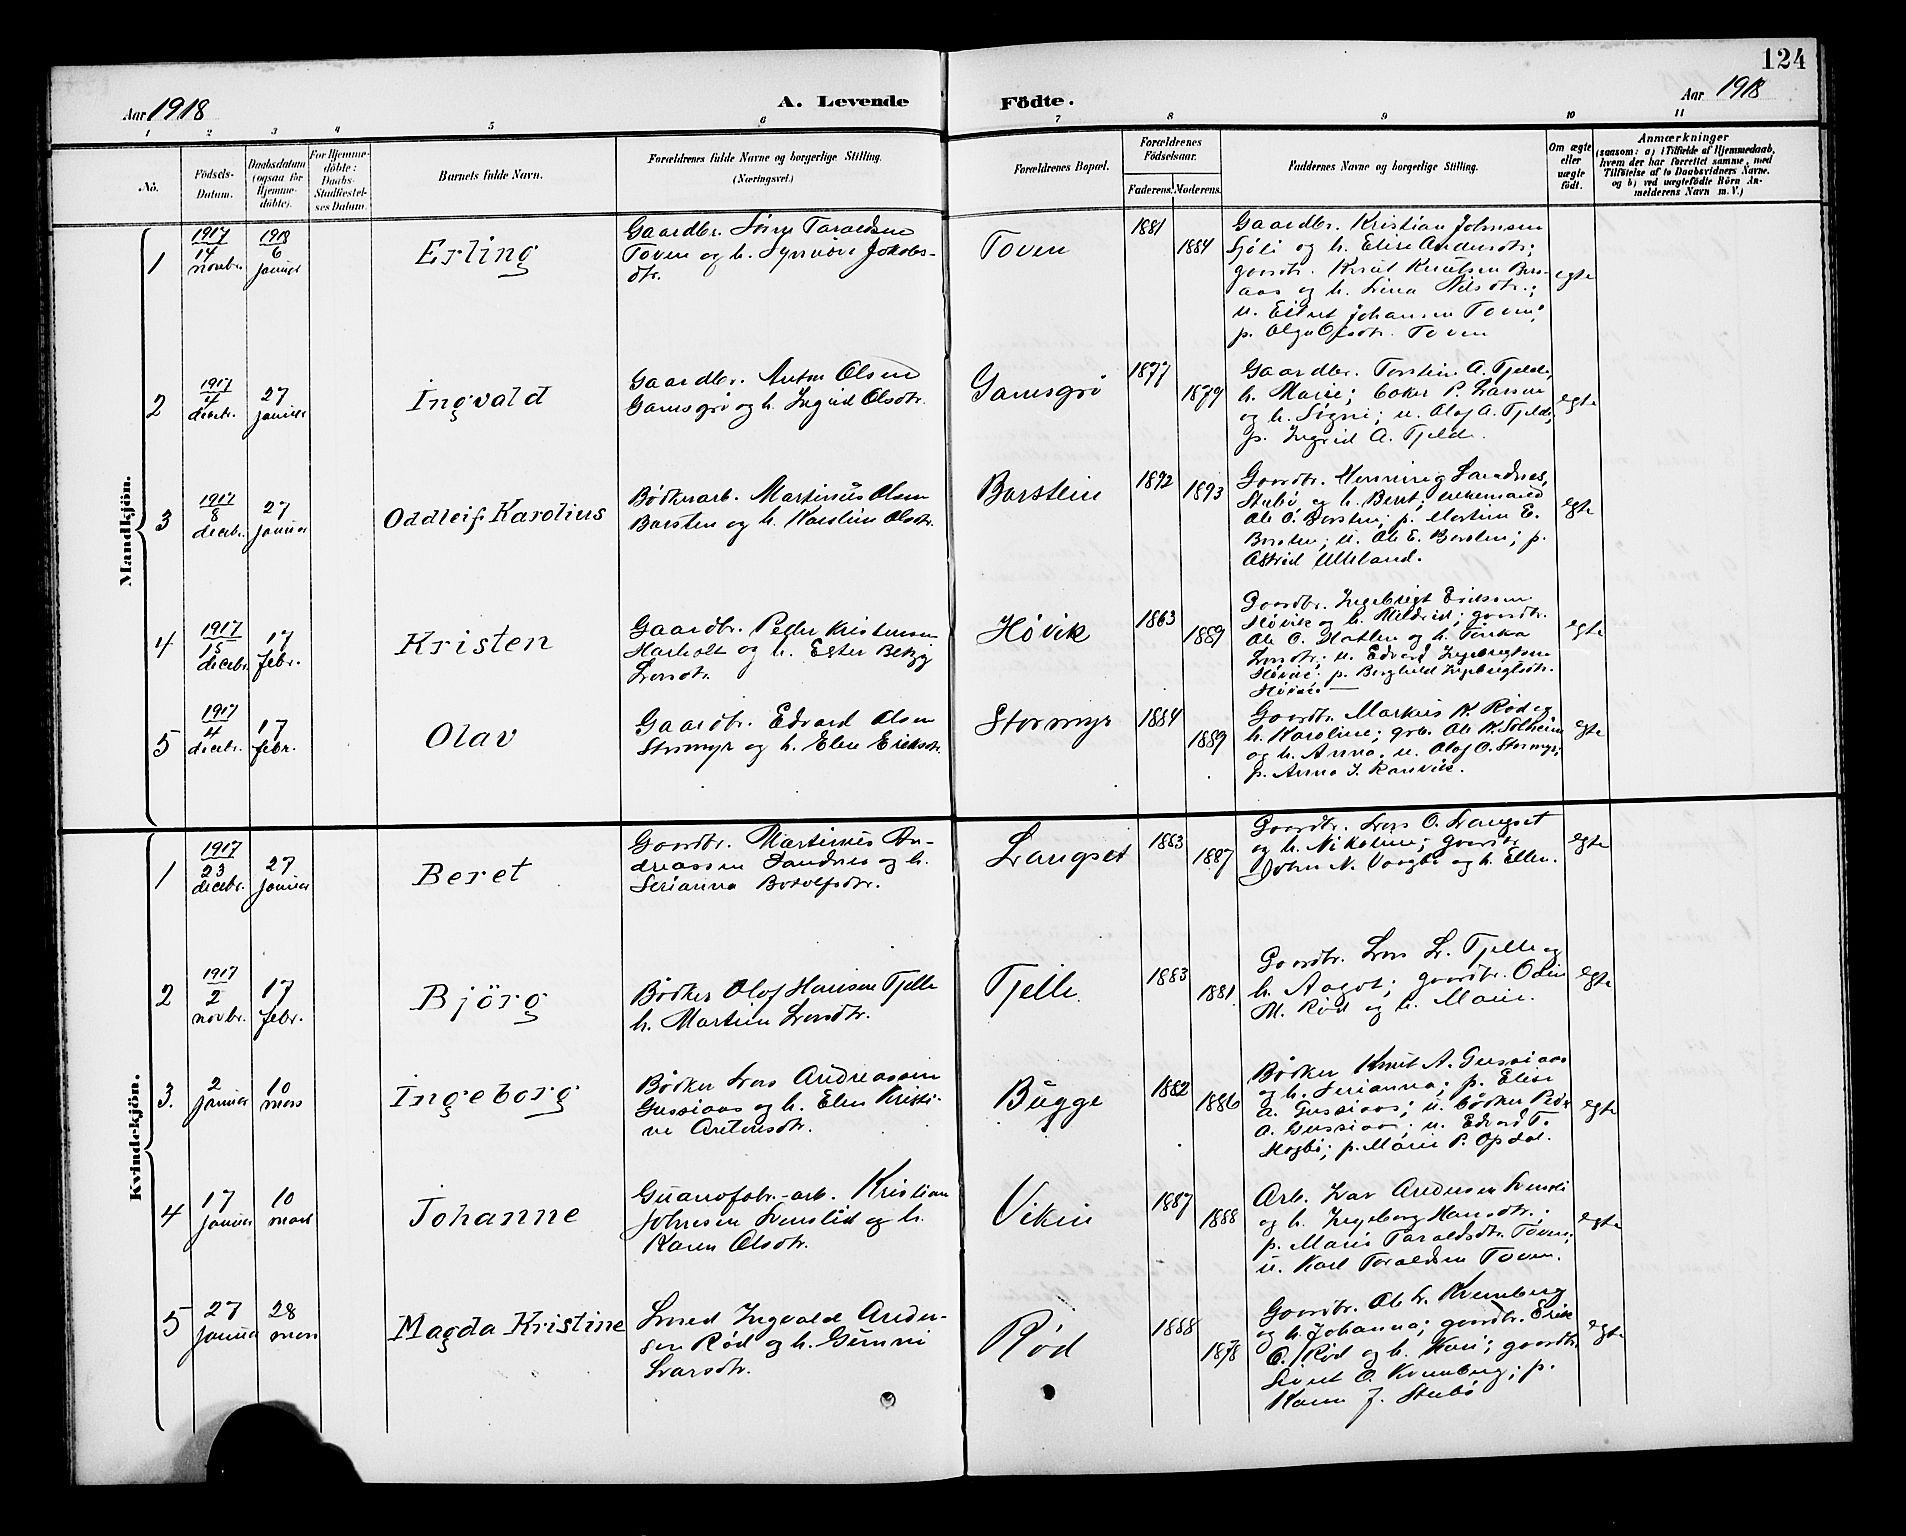 124
Aar 1918
A. Levende Födte.
Aar 1918
1 2 3 4 5 6 7 8 9 10 11
No.
Födsels-
Datum.
Daabsdatum
(ogsaa for
Hjemme-
döbte).
For Hjemme-
döbte:
Daabs-
Stadfæstel-
ses Datum.
Barnets fulde Navn.
Forældrenes fulde Navne og borgerlige Stilling.
(Næringsvei.)
Forældrenes Bopæl.
Forældrenes
Födselsaar.
Faderens.
Moderens.
Faddernes Navne og borgerlige Stilling.
Om ægte
eller
uægte
födt.
Anmærkninger
(saasom: a) i Tilfælde af Hjemmedaab,
hvem der har forrettet samme, med
Tilföielse af to Daabsvidners Navne,
og b) ved uægtefödte Börn An-
melderens Navn m. V.)
Mandkjön.
1
1917
14
novbr.
1918
6
januar
Erling
Gaardbr. Sören Taraldsen
Toven og h. Synnöve Jakobs-
dtr.
Toven
1881
1884
Gaardbr. Kristian Johnsen
Sjöli og h. Elise Andersdtr;
gaardbr. Knut Knutsen Bers-
aas og h. Lina Nilsdtr.;
u. Eilert Johansen Toven;
p. Olga Olsdtr. Toven
egte
2
1917
4
decbr.
27
januar
Ingvald
Gaardbr. Anton Olsen
Gamsgrö og h. Ingrid Olsdtr.
Gamsgrö
1877
1879
Gaardbr. Torstein A. Tjelde,
h. Marie; P. Larsen
og h. Signe; u. Olaf A. Tjelde,
p. Ingrid A. Tjelde.
egte
3
1917
8
decbr.
27
januar
Oddleif Karolius
Bödkerarb. Martinus Olsen
Barsten og h. Karoline Olsdtr.
Barstein
1892
1893
Gaardbr. Henning Sandnes,
Stubö og h. Beret; enkemand
Ole O. Barsten; p. Martine E.
Barsten; u. Ole E. Barsten; p.
Astrid Ulleland.
egte
4
1917
15
decbr.
17
febr.
Kristen
Gaardbr. Peder Kristensen
Harholt og h. Ester Betzy
Larsdtr.
Hövik
1863
1889
Gaardbr. Ingebrigt Eriksen
Hövik og h. Mildrid; gaardbr.
Ole O. Hatlen og h.
Larsdtr; u. Edvard Ingebrigtsen
Hövik; p. Berghild Ingebrigtsdtr.
Hövik
egte
5
1917
4
decbr.
17
febr.
Olav
Gaardbr. Edvard Olsen
Stormyr og h. Elen Eriksdtr.
Stormyr
1884
1889
Gaardbr. Markus K. Röd og
h. Karoline; grb. Ole K. Solheim
og h. Anna, u. Olaf O. Stormyr;
p. Anna J. Ranvik.
egte
Kvindekjön.
1
1917
23
decbr.
27
januar
Beret
Gaardbr. Martinus An-
dreassen Sandnes og h.
Serianna Botolfsdtr.
Langset
1883
1887
Gaardbr. Lars O. Langset
og h. Nikoline; gaardbr.
John N. Vaagbö og h. Ellen.
egte
2
1917
2
novbr.
17
febr.
Björg
Bödker Olaf Hansen Tjelle
h. Martine Larsdtr.
Tjelle
1883
1881
Gaardbr. Lars L. Tjelle og
h. Aagot; gaardbr. Odin
M. Röd og h. Marie.
egte
3.
2
januar
10
mars
Ingeborg
Bödker Lars Andreassen
Gussiaas og h. Elen Kristi-
ne Arntensdtr.
Bugge
1882
1886
Bödker Knut A. Gussiaas
og h. Serianna; p. Elise
A. Gussiaas; u. bödker Peder
A. Gussiaas; u. Edvard T.
Magbö; p. Marie P. Opdöl.
egte
4
17
januar
10
mars
Johanne
Guanofabr.-arb. Kristian
Johnsen Lenslid og h.
Karen Olsdtr.
Viken
1887
1888
Arb. Ivar Andersen
og h. Ingeborg Hansdtr.;
p. Marie Taraldsdtr. Toven;
u. Karl Taraldsen Toven.
egte
5
27
januar
28
mars
Magda Kristine
Smed Ingvald Ander-
sen Röd og h. Gunni
Larsdtr.
Röd
1888
1878
Gaardbr. Ole L. Kvernberg
og h. Johanna; gaardbr. Erik
O. Röd og h. Kari; gaardbr.
Sivert O. Kvernberg; p.
Karen J. Stubö
egte